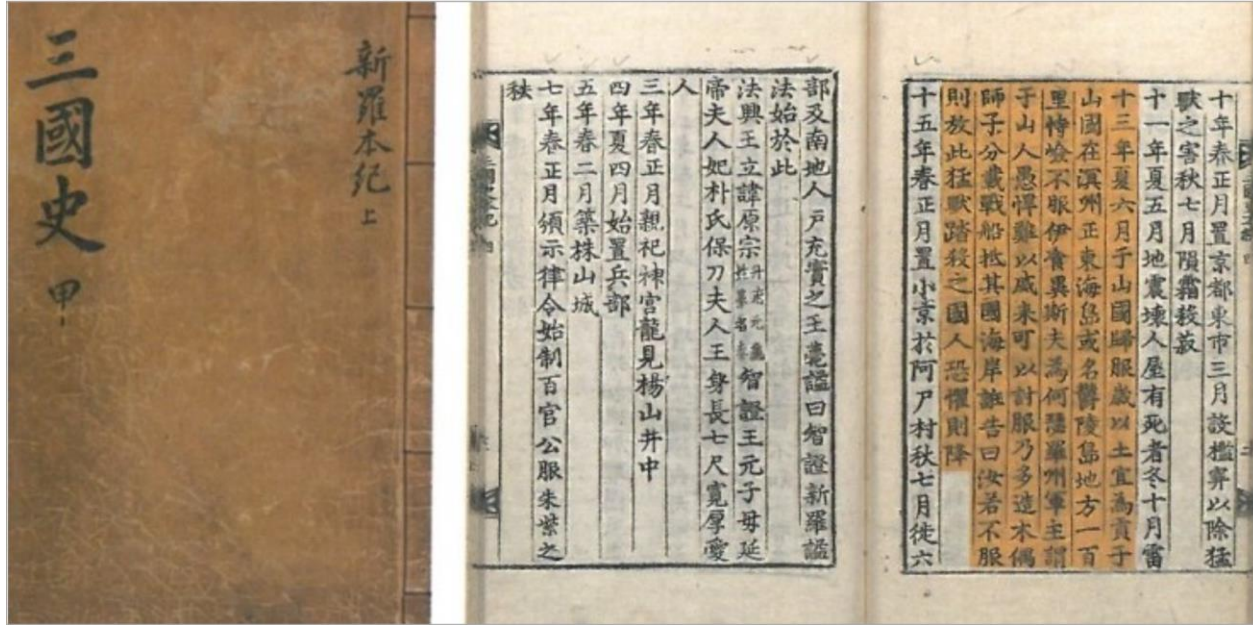 三國史 甲
新羅本紀 上
十年春正月置京都東市三月設檻穽以除猛
獸之害秋七月隕霜殺菽
十一年夏五月地震壞人屋有死者冬十月雷
十三年夏六月于山國歸服歲以土宜為貢于
山國在溟州正東海島或名鬱陵島地方一百
里恃嶮不服伊飡異斯夫為何瑟羅州軍主謂
于山人愚悍難以威来可以計服乃多造木偶
師子分載戰船抵其國海岸誑告曰汝若不服
則放此猛獸踏殺之國人恐懼則降
十五年春正月置小京於阿尸村秋七月徙六
部及南地人戶充實之王薨謚曰智證新羅謚
法始於此
法興王立諱原宗冊府元龜姓募名秦智證王元子母延
帝夫人妃朴氏保刀夫人王身長七尺寬厚愛
人
三年春正月親祀神宮龍見楊山井中
四年夏四月始置兵部
五年春二月築株山城
七年春正月頒示律令始制百官公服朱紫之
秩